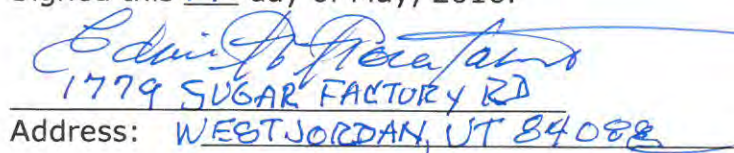 Signed this day of May, 2018.
Edwin
1779 SUGAR FACTORY RD
Address: WEST JORDAN, UT 84088